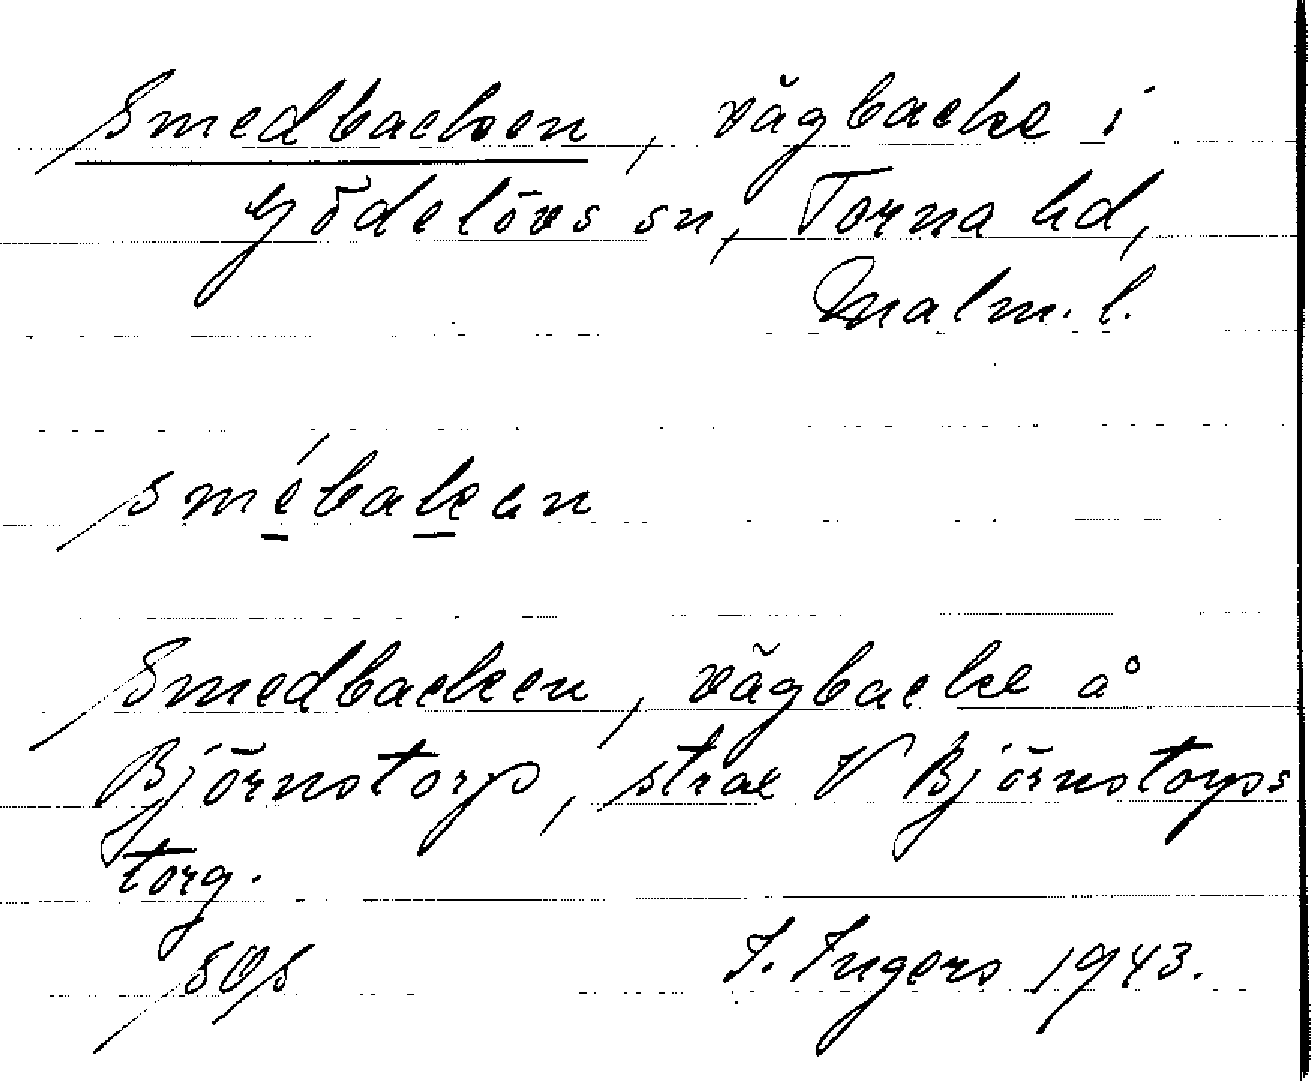 Smedbacken, vägbacke i
Gödelövs sn, Torna hd,
Malm. l.
smébakan
Smedbacken, vägbacke å
Björnstorp, strax V Björnstorps
torg.
SOS I. Ingers 1943.